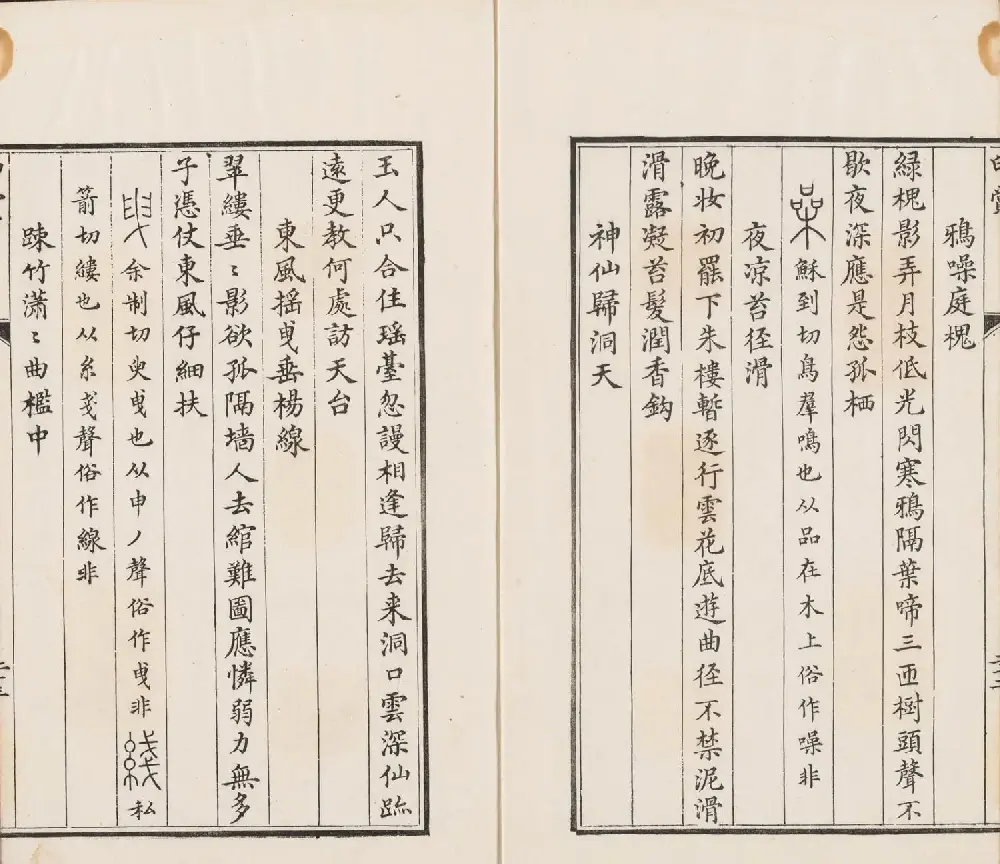 鴉噪庭槐
綠槐影弄月枝低光閃寒鴉隔葉啼三匝樹頭聲不
歇夜深應是怨孤栖
喿穌到切鳥羣鳴也从品在木上俗作噪非
夜凉苔径滑
晚妆初罷下朱樓暫逐行雲花底遊曲径不禁泥滑
滑露凝苔髮潤香鈎
神仙歸洞天
玉人只合住瑶臺忽謾相逢歸去来洞口雲深仙跡
遠更教何處訪天台
東風摇曳垂楊線
翠縷垂〻影欲孤隔墙人去綰難圖應憐弱力無多
子憑仗東風仔細扶
余制切臾曳也从申丿聲俗作曵非綫私
箭切縷也从糸戔聲俗作線非
踈竹瀟〻曲檻中